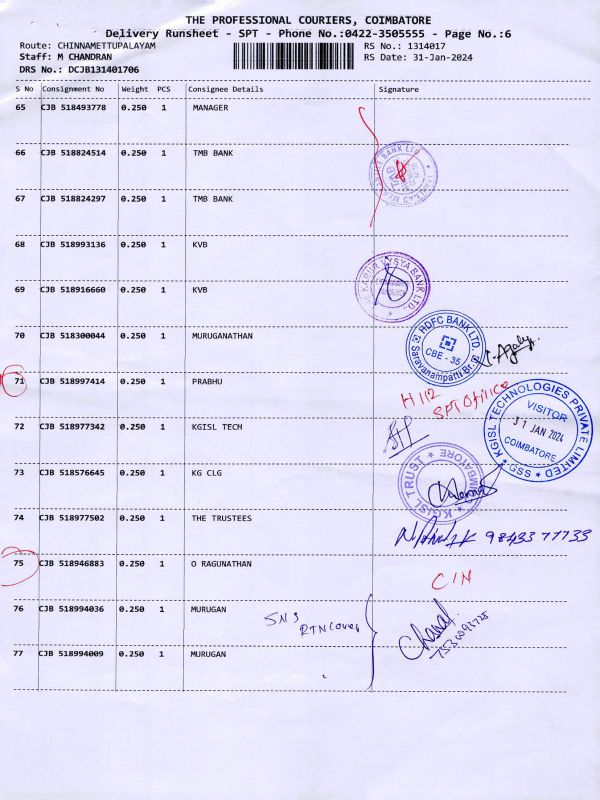 THE PROFESSIONAL COURIERS, COIMBATORE
Delivery Runsheet - SPT - Phone No.:0422-3505555 - Page No.:6
Route: CHINNAMETTUPALAYAM RS No.: 1314017
Staff: M CHANDRAN RS Date: 31-Jan-2024
DRS No.: DCJB131401706
S No Consignment No Weight PCS Consignee Details Signature
65 CJB 518493778 0.250 1 MANAGER
66 CJB 518824514 0.250 1 TMB BANK
TMB
67 CJB 518824297 0.250 1 TMB BANK
68 CJB 518993136 0.250 1 KVB
VYSYA BANK LTD.
69 CJB 518916660 0.250 1 KVB
70 CJB 518300044 0.250 1 MURUGANATHAN
HDFC BANK LTD.
CBE - 35
Saravanampatti Br.
71 CJB 518997414 0.250 1 PRABHU
H112
SPT Office
72 CJB 518977342 0.250 1 KGISL TECH
KGISL TECHNOLOGIES PRIVATE LIMITED
VISITOR
31 JAN 2024
COIMBATORE
GSS
73 CJB 518576645 0.250 1 KG CLG
KGISL TRUST
COIMBATORE
74 CJB 518977502 0.250 1 THE TRUSTEES
98433 77733
75 CJB 518946883 0.250 1 O RAGUNATHAN
C/N
76 CJB 518994036 0.250 1 MURUGAN
SNS
RTN Cover
77 CJB 518994009 0.250 1 MURUGAN